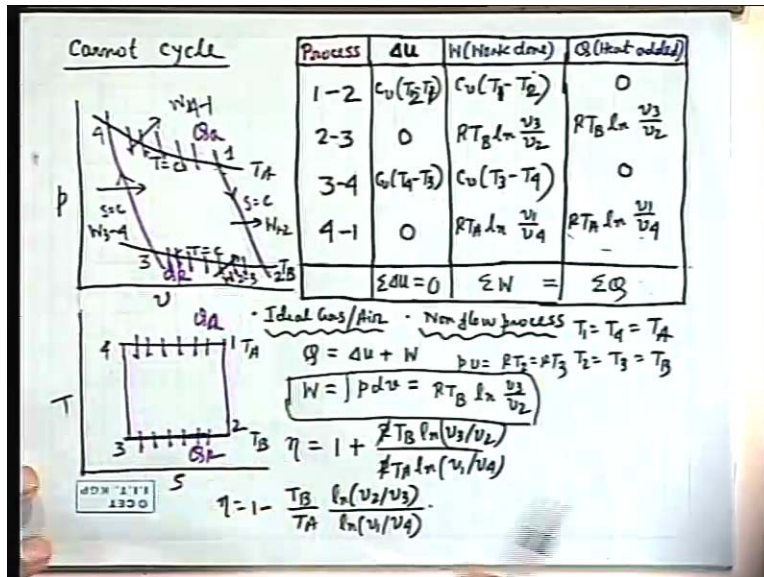 Carnot cycle
Process ΔU W(Work done) Q(Heat added)
1-2 Cv(T2-T1) Cv(T1-T2) 0
2-3 0 RTB ln v3/v2 RTB ln v3/v2
3-4 Cv(T4-T3) Cv(T3-T4) 0
4-1 0 RTA ln v1/v4 RTA ln v1/v4
ΣΔU=0 ΣW = ΣQ
p
4
W4-1
QA
T=C
1
TA
S=C
W1-2
S=C
W3-4
3
T=C
QR
W2-3
2
TB
v
T
4
QA
1
TA
3
QR
2
TB
S
· Ideal Gas/Air · Non flow process T1=T4=TA
Q = ΔU + W pv = RT2=RT3 T2=T3=TB
W = ∫pdv = RTB ln v3/v2
η = 1 + RTB ln(v3/v2) / RTA ln(v1/v4)
η = 1- TB/TA ln(v2/v3)/ln(v1/v4).
OCET
I.I.T. KGP